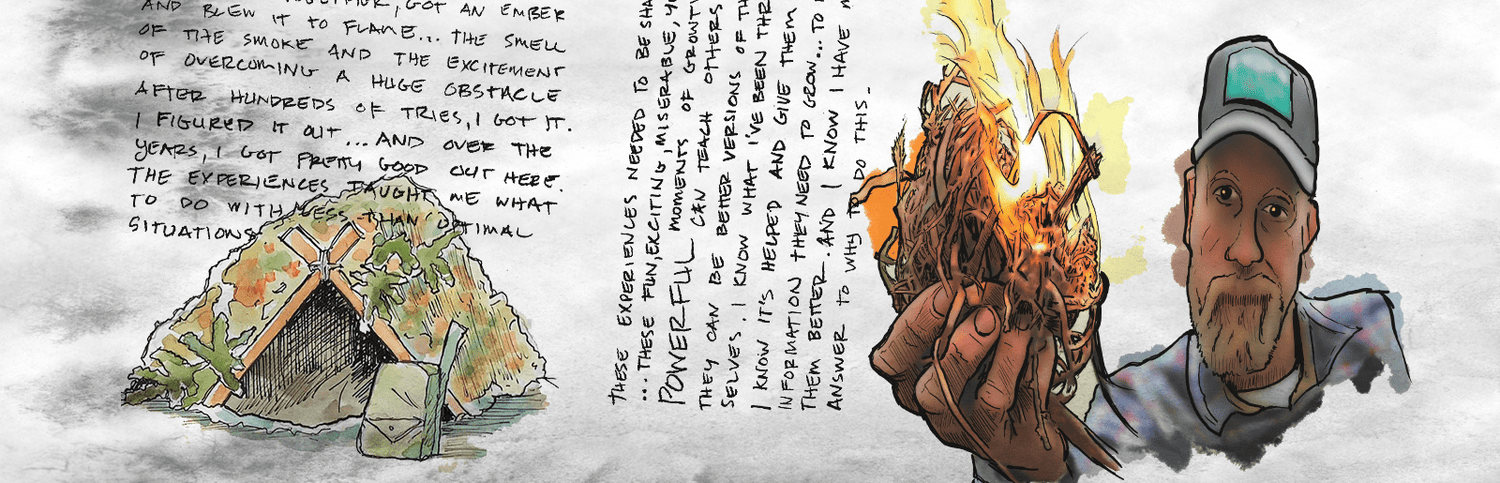 AND BLEW IT TO FLAME... THE SMELL
OF THE SMOKE AND THE EXCITEMENT
OF OVERCOMING A HUGE OBSTACLE
AFTER HUNDREDS OF TRIES, I GOT IT.
I FIGURED IT OUT ... AND OVER THE
YEARS, I GOT PRETTY GOOD OUT HERE.
THE EXPERIENCES TAUGHT ME WHAT
TO DO WITH LESS THAN OPTIMAL
SITUATIONS
THESE EXPERIENCES NEEDED TO BE
... THESE FUN, EXCITING, MISERABLE,
POWERFUL MOMENTS OF GROWTH
THEY CAN TEACH OTHERS
THEY CAN BE BETTER VERSIONS OF
SELVES. I KNOW WHAT I'VE BEEN
I KNOW IT'S HELPED AND GIVE THEM
INFORMATION THEY NEED TO GROW... TO
THEM BETTER. AND I KNOW I HAVE
ANSWER TO WHY TO DO THIS.